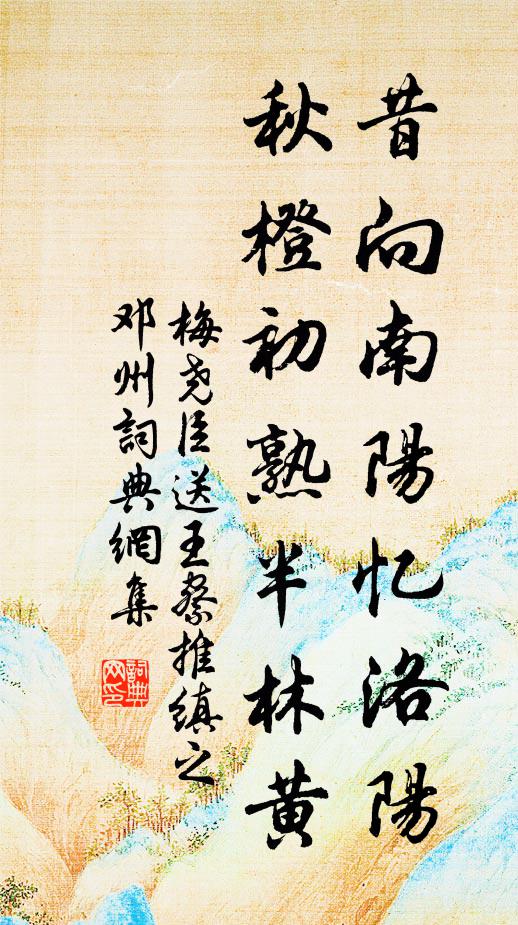 昔向南陽忆洛陽
秋橙初熟半林黄
梅尧臣送王察推缜之
邓州詞典網集
詞典网印